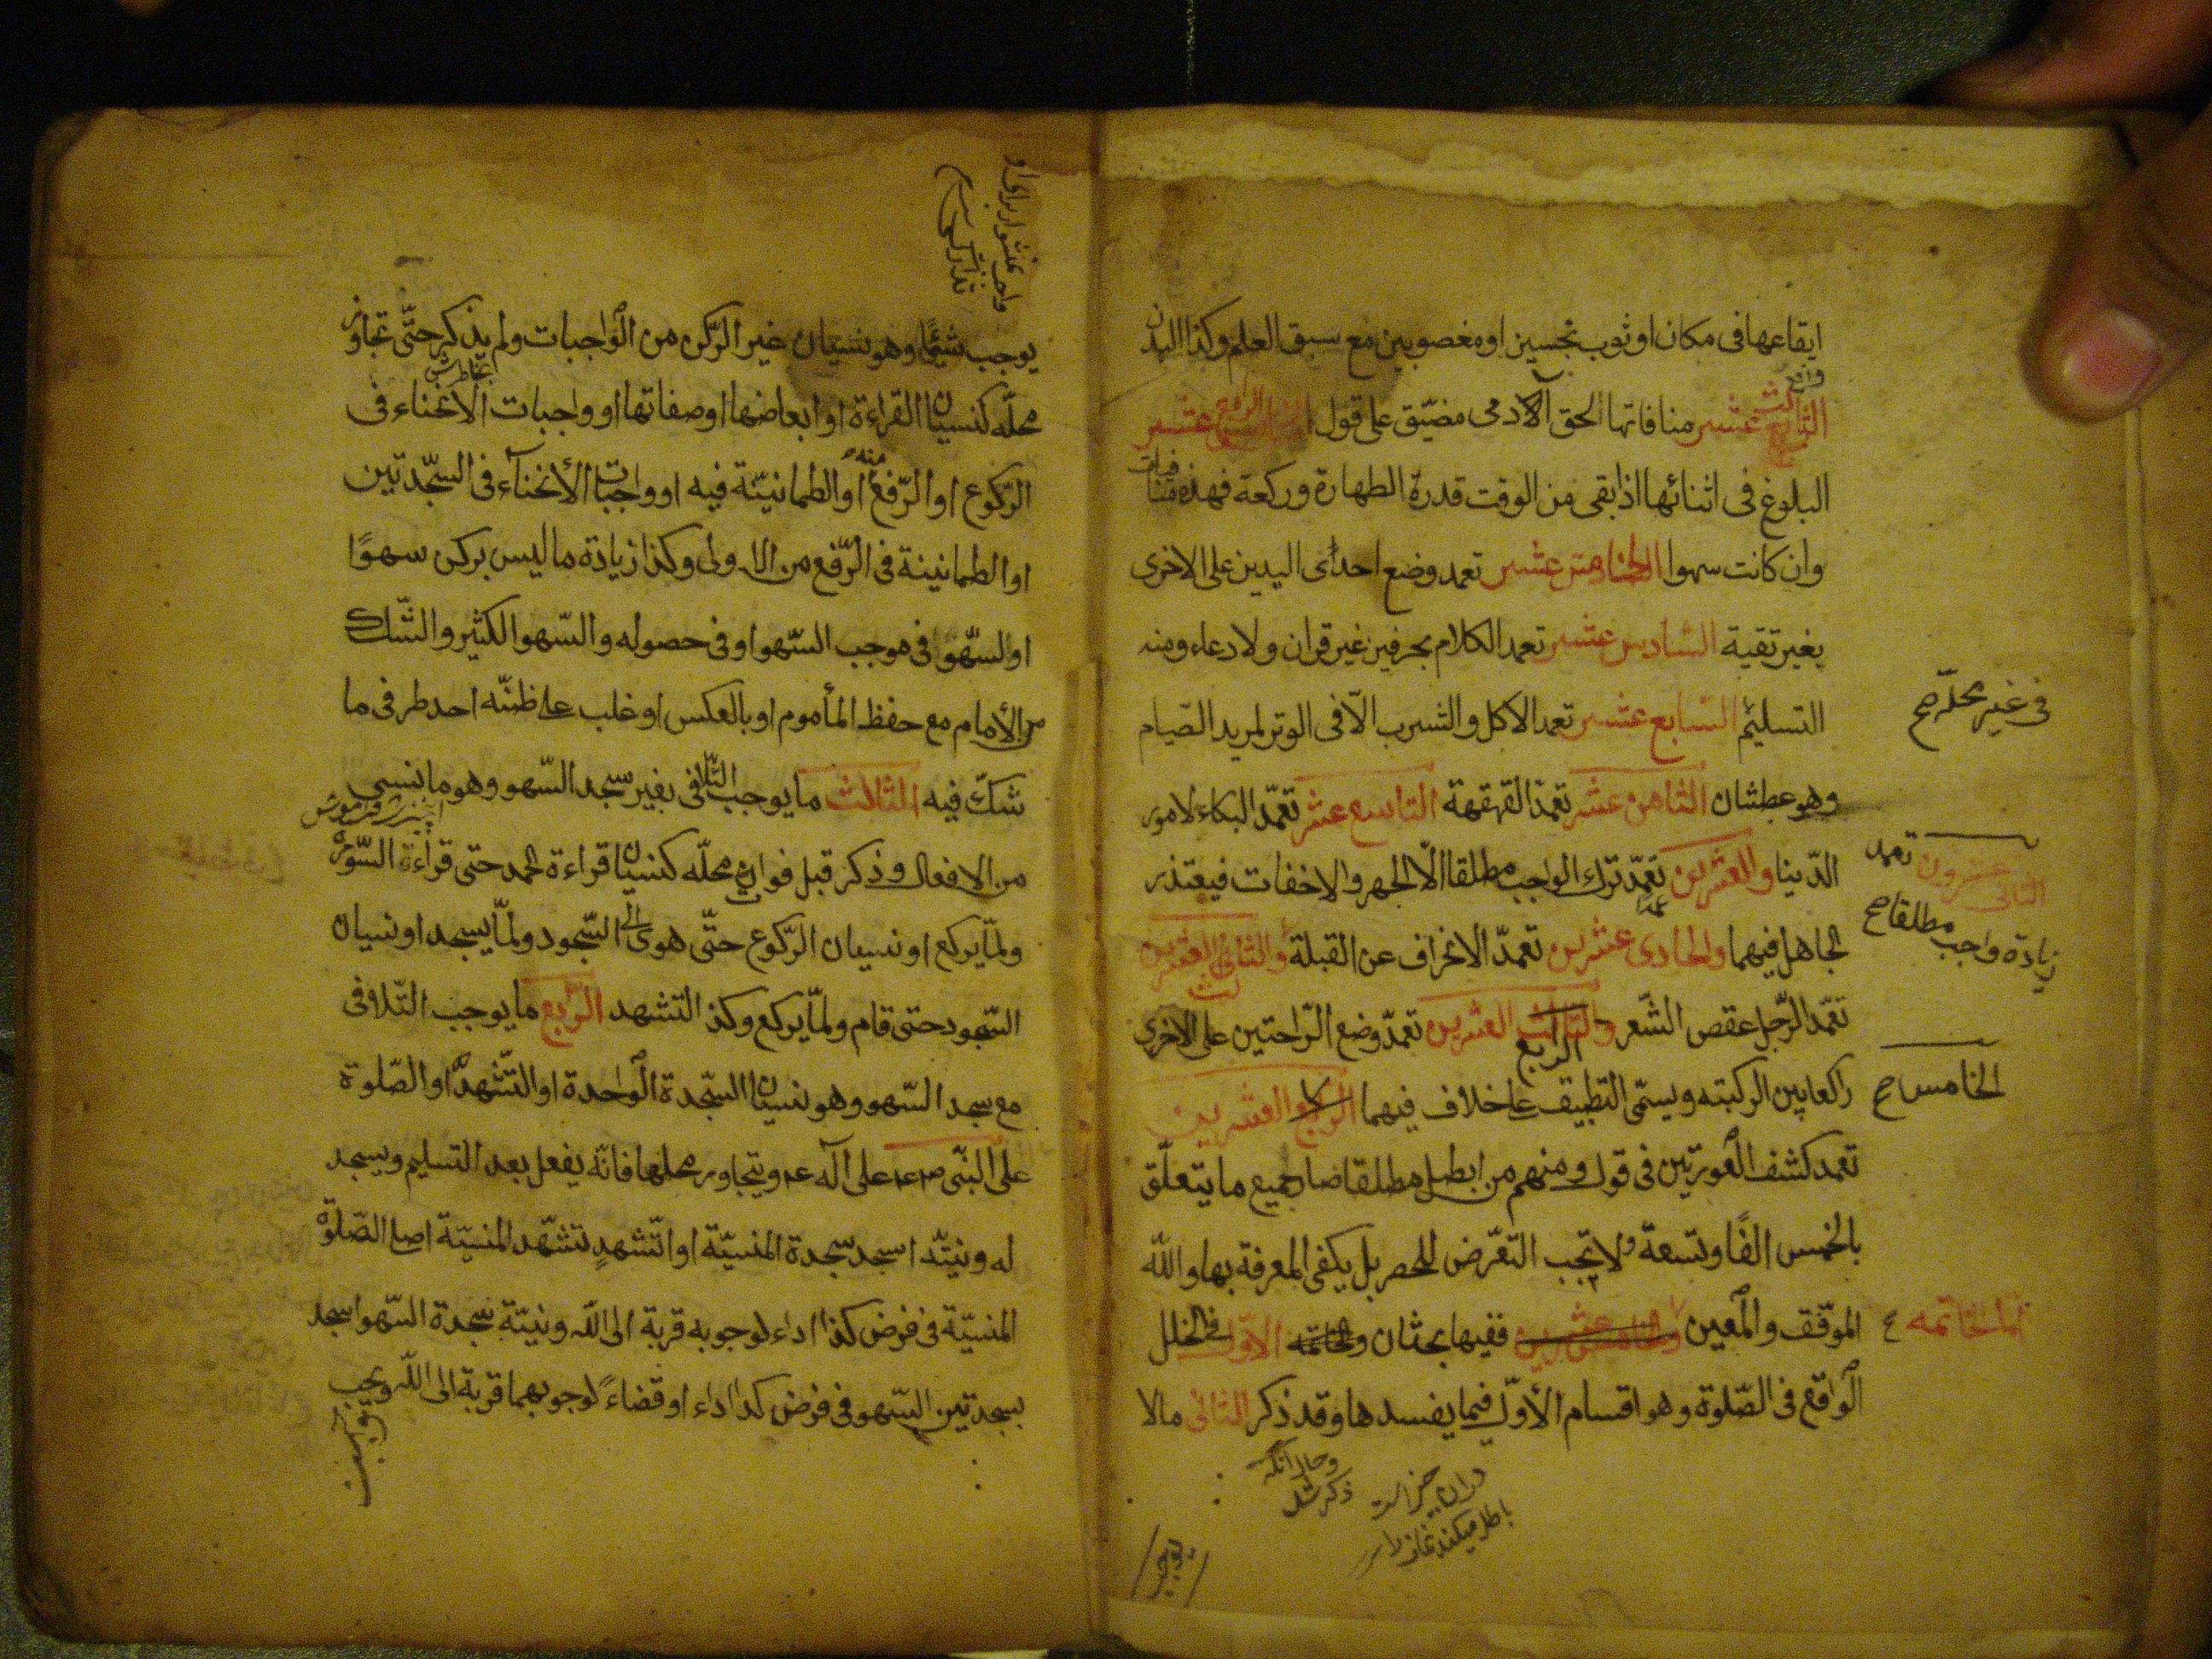 ايقاعها فى مكان او ثوب نجسين او مغصوبين مع سبق العلم وكذا البدن
الثالث عشر منافاتها لحق الآدمى مضيّق على قول الرابع عشر
البلوغ فى اثنائها اذا بقى من الوقت قدرة الطهارة وركعة فهذه منافيات
وان كانت سهوا الخامس عشر تعمد وضع احدى اليدين على الاخرى
بغير تقية السادس عشر تعمد الكلام بحرفين غير قران ولا دعاء ومنه
التسليم السابع عشر تعمد الاكل والشرب الّا فى الوتر لمريد الصّيام
فى غير محلّه صح
وهو عطشان الثامن عشر تعمّد القهقهة التاسع عشر تعمّد البكاء لامور
الدّينا والعشرين تعمّد ترك الواجب مطلقا الّا الجهر والاخفات فيعتذر
الثانى عشرون تعمد
زيادة واجب مطلقا صح
الجاهل فيهما والحادى عشرين تعمدّ الانحراف عن القبلة والثانى العشرين
تعمّد الرّجل عقص الشّعر والثالث العشرين تعمدّ وضع الرّاحتين على الاخرى
الرابع
راكعا بين الركبته ويسمّى التطبيق على خلاف فيهما الرابع العشرين
الخامس صح
تعمد كشف العورتين فى قول ومنهم من ابطل مطلقا صار جميع ما يتعلّق
بالخمس الفًا وتسعة ولا تجب التعّرض للحصر بل يكفى المعرفة بها والله
الموّفق والمعين ففيها بحثان الاوّل فى الخلل
امّا الخاتمه
الواقع فى الصّلوة وهو اقسام الأوّل فيما يفسدها وقد ذكر الثانى ما لا
وحال آنكه
ذكر شد
در ان چيز است
باطل ميكند نماز را
يوجب
يوجب شيئًا وهو نسيان غير الرّكن من الواجبات ولم يذكر حتّى تجاوز
محلّه كنسيان القراءة او ابعاضها او صفاتها او واجبات الأنحناء فى
الرّكوع او الرّفع منه او الطمانيّنة فيه او واجبات الأنحناء فى السّجدتين
او الطمانينة فى الرّفع من الاولى وكذا زيادة ما ليس بركن سهوًا
او السّهو فى موجب السّهو او فى حصوله والسّهو الكثير والشّك
من الأمام مع حفظ المأموم او بالعكس او غلب على ظنّه احد طرفى ما
شكّ فيه الثالث ما يوجب التّلافى بغير سجد السّهو وهو ما نسى
من الافعال وذكر قبل فوات محلّه كنسيان قراءة الحمد حتى قراءة السّورة
ولمّا يركع او نسيان الرّكوع حتّى هوى الى السّجود ولمّا يسجد او نسيان
السّجود حتى قام ولمّا يركع وكذ التشهد الرّابع ما يوجب التّلافى
مع سجد السّهو وهو نسيان السّجدة الواحدة او التشّهد او الصّلوة
على النبّى ص ع على آله ع ويتجاوز محلها فانّه يفعل بعد التسليم ويسجد
له ونيتّه اسجد سّجدة المنسيّة او اتّشهد تشّهد المنسيّة اصلى الصّلوة
المنسيّة فى فرض كذا اداء لوجوبه قربة الى الله ونيتّة سّجدة السّهو اسجد
بسجدتين السّهو فى فرض كذا اداء او قضاءً لوجوبهما قربة الى الله ويجب